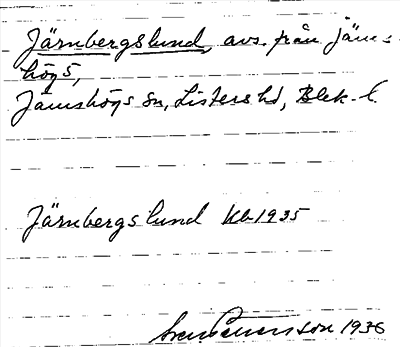 Järnbergslund, avs. från Jäms-
hög 5,
Jämshögs sn, Listers hd, Blek. l.
Järnbergslund Kb 1935
Sven Benson 1936